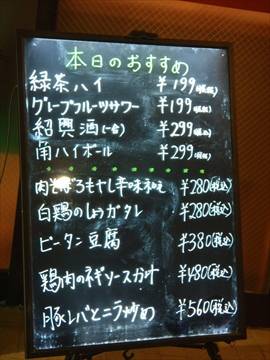 本日のおすすめ
緑茶ハイ ¥199(税抜)
グレープフルーツサワー ¥199(税抜)
紹興酒(一合) ¥299(税抜)
角ハイボール ¥299(税抜)
肉そぼろもやし辛味和え ¥280(税込)
白鶏のしょうがタレ ¥280(税込)
ピータン豆腐 ¥380(税込)
鶏肉のネギソースがけ ¥480(税込)
豚レバとニラ炒め ¥560(税込)